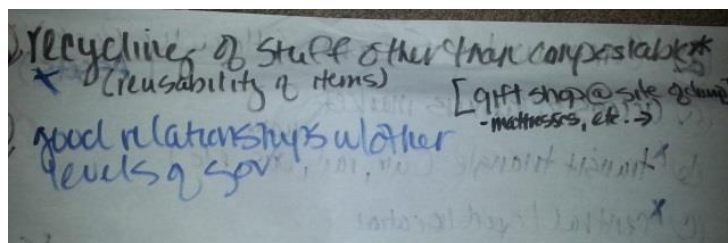 recycling of stuff other than compostable*
* (reusability of items)
[gift shop @ site of dump
- mattresses, etc. →
good relationships w/ other
levels of gov